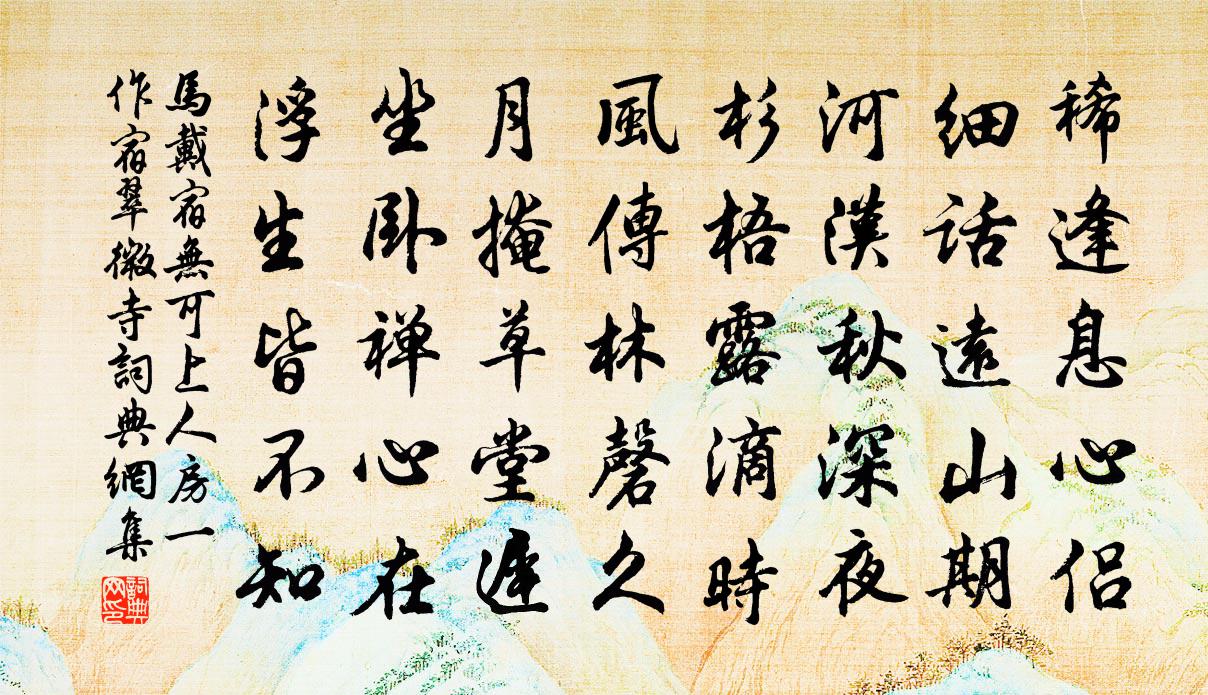 稀逢息心侶
細話遠山期
河漢秋深夜
杉梧露滴時
風傳林磬久
月掩草堂遲
坐臥禅心在
浮生皆不知
馬戴宿無可上人房一
作宿翠微寺詞典網集
詞典网印